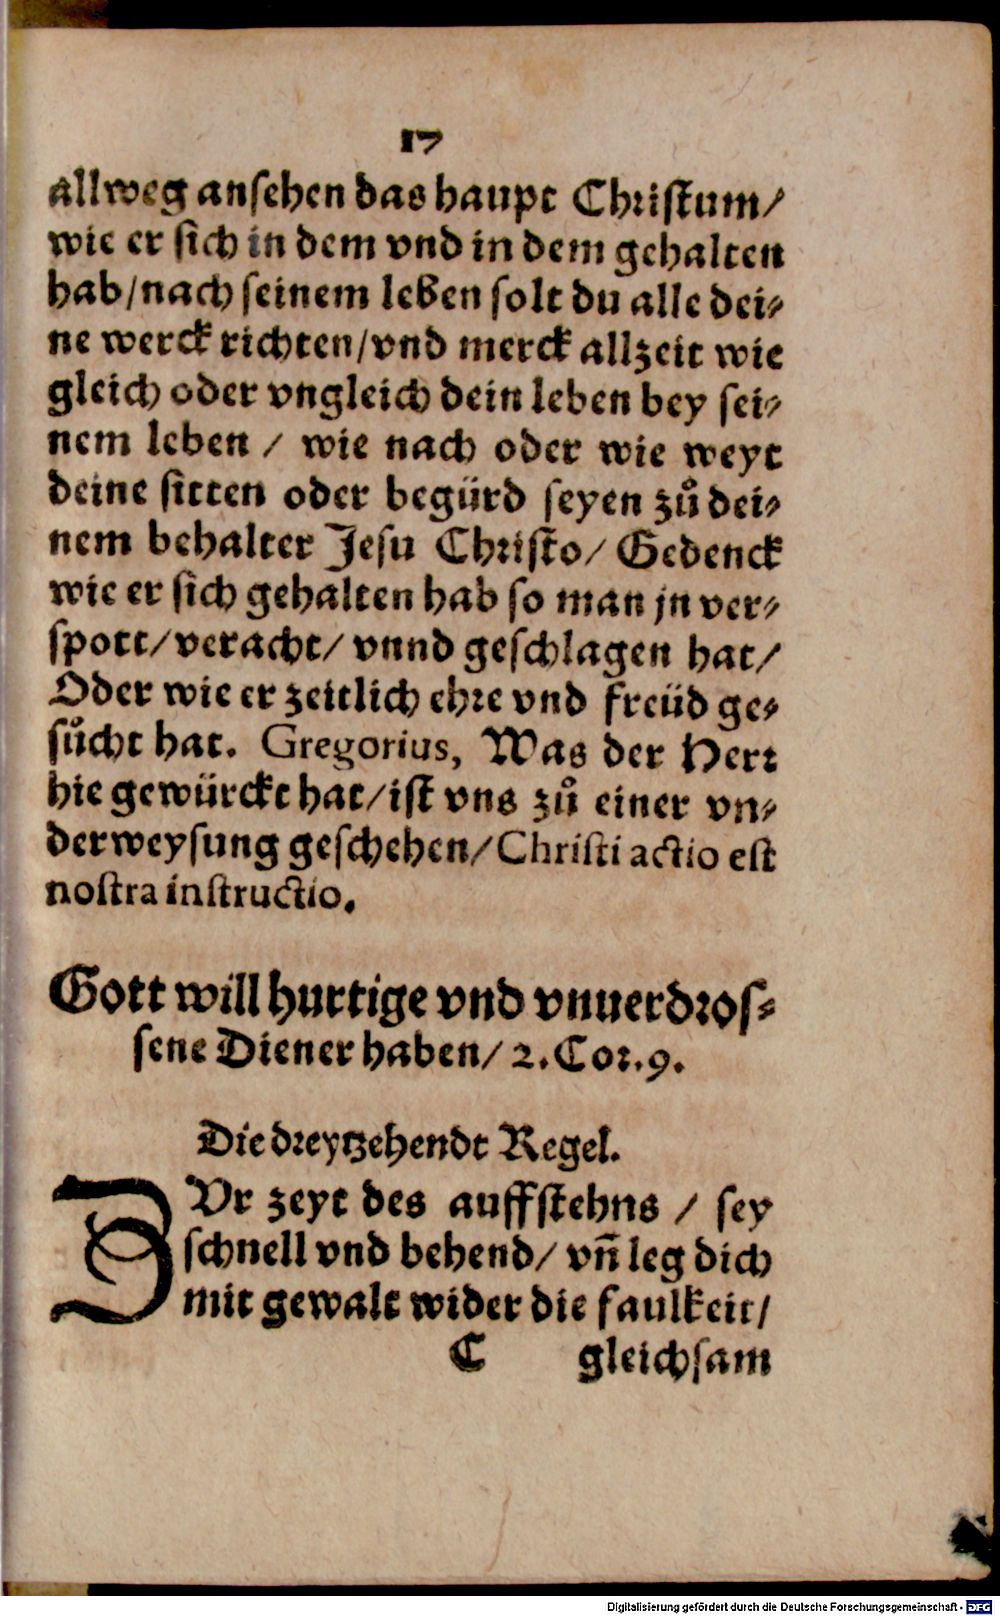 17
allweg ansehen das haupt Christum/
wie er sich in dem vnd in dem gehalten
hab/nach seinem leben solt du alle dei⸗
ne werck richten/vnd merck allzeit wie
gleich oder vngleich dein leben bey sei⸗
nem leben / wie nach oder wie weyt
deine sitten oder begürd seyen zuͦ dei⸗
nem behalter Jesu Christo/ Gedenck
wie er sich gehalten hab so man jn ver⸗
spott/veracht/ vnnd geschlagen hat/
Oder wie er zeitlich ehre vnd freüd ge⸗
suͦcht hat. Gregorius, Was der Herr
hie gewürckt hat/ist vns zuͦ einer vn⸗
derweysung geschehen/Christi actio est
nostra instructio.
Gott will hurtige vnd vnuerdros⸗
sene Diener haben/ 2.Cor.9.
Die dreytzehendt Regel.
ZVr zeyt des auffstehns / sey
schnell vnd behend/ vñ leg dich
mit gewalt wider die faulkeit/
C gleichsam
Digitalisierung gefördert durch die Deutsche Forschungsgemeinschaft - DFG